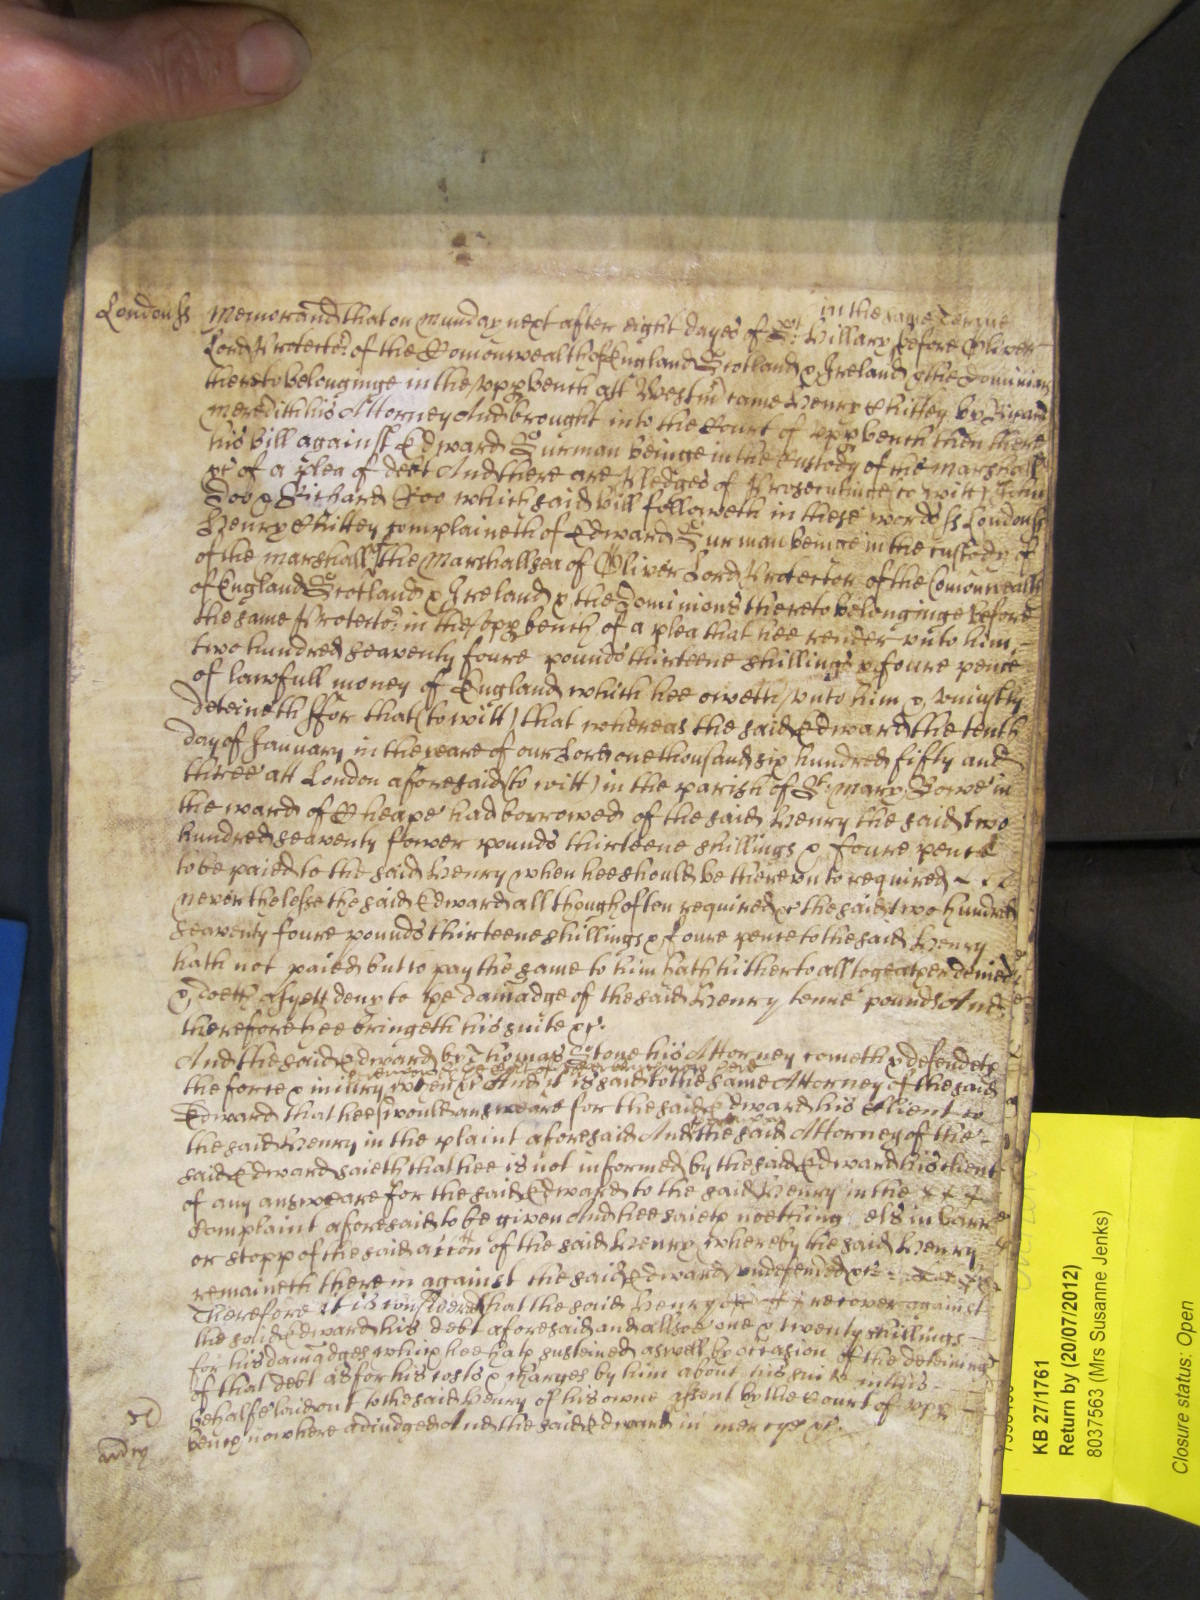 in the same Terme
London ss Memorand that on Munday next after eight dayes of St Hillary before Oliver
Lord Protector of the Comonwealth of England Scotland & Ireland & the Dominions
thereto belonginge in the upp bench att Westm came Henry Chittey by Richard
Meredith his Attorney And brought into the Court of upp bench then there
his bill against Edward Surman beinge in the Custody of the Marshall
&c of a plea of debt And there are Pledges of Prosecutinge (to witt) John
Doo & Richard Roo which said bill followeth in these words ss London ss
Henry Chittey complaineth of Edward Surman beinge in the custody of
of the Marshall of the Marshallsea of Oliver Lord Protector of the Comonwealth
of England Scotland & Ireland & the Dominions thereto belonginge before
the same Protector in the upp bench of a plea that hee render unto him
two hundred seaventy foure pounds thirteene shillings & foure pence
of lawfull money of England which hee oweth unto him & uniustly
deteineth ffor that (to witt) that whereas the said Edward the tenth
day of January in the yeare of our Lord one thousand six hundred fifty and
three att London aforesaid (to witt) in the parish of St Mary Bowe in
the ward of Cheape had borrowed of the said Henry the said two
hundred seaventy fower pounds thirteene shillings & foure pence
to be paied to the said Henry when hee should be thereunto required
neverthelesse the said Edward allthough often required &c the said two hundred
seaventy foure pounds thirteene shillings & foure pence to the said Henry
hath not paied but to pay the same to him hath hitherto alltogeather denied
& doeth as yett deny to the damadge of the said Henry tenne pounds And
therefore hee bringeth his suite &c.
And the said Edward by Thomas Stone his Attorney cometh & defendeth
the force & iniury when &c And it is said to the same Attorney of the said
Edward that hee would answeare for the said Edward his Client to
the said Henry in the plaint aforesaid And the said Attorney of the
said Edward saieth that hee is not informed by the said Edward his client
of any answeare for the said Edward to the said Henry in the
Complaint aforesaid to be given And hee saieth noething els in barre
or stopp of the said accon of the said Henry whereby the said Henry
remaineth therein against the said Edward undefended &c
Therefore it is considered that the said Henry recover against
the said Edward his debt aforesaid and allsoe one & twenty shillings
for his damadges which hee hath susteined aswell by occasion of the deteining
of that debt as for his costs & charges by him about his suite in this
behalfe laid out to the said Henry of his owne assent by the Court of upp
bench nowhere adiudged And the said Edward in mercy &c.
KB 27/1761
Return by (20/07/2012)
8037563 (Mrs Susanne Jenks)
Closure status: Open